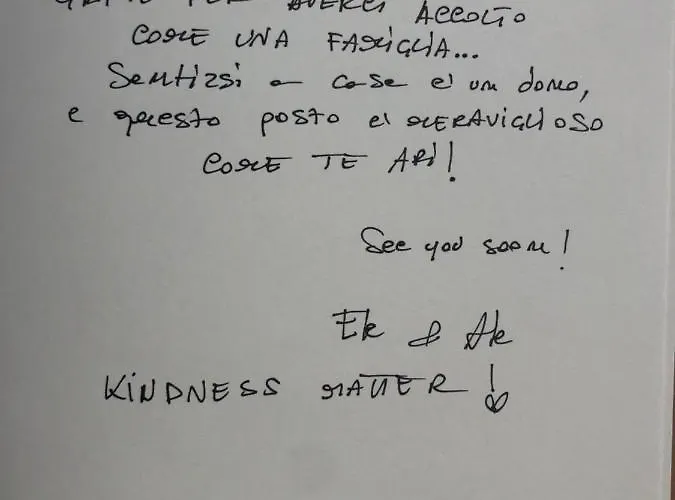 GRAZIE PER AVERCI ACCOLTO
COME UNA FAMIGLIA...
Sentirsi a casa e' un dono,
e questo posto e' MERAVIGLIOSO
COME TE ARI!
See you soon!
Ek & Ak
KINDNESS MATTER!